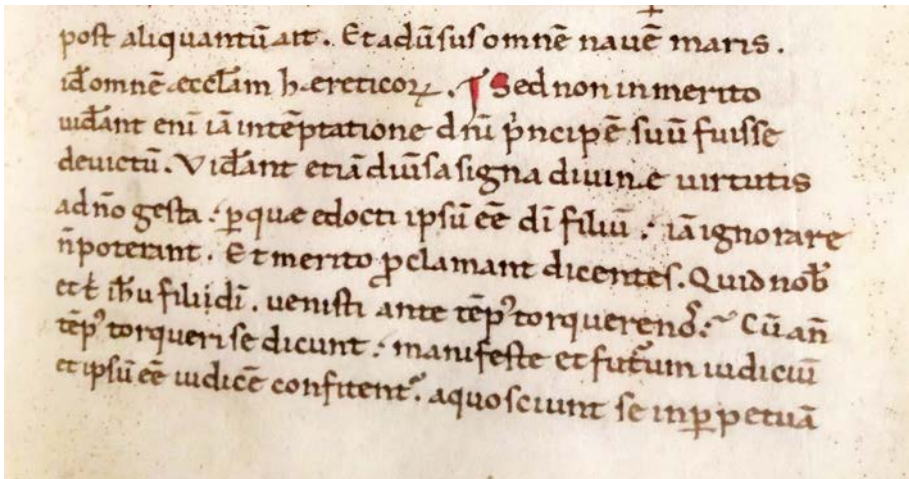 post aliquantū ait. Et adūsus omnē nauē maris.
id omnē æcclam hæreticoꝝ. Sed non inmerito
uidant enī iā intēptatione dnī pncipē suū fuisse
deuictū. Vidant etiā diuisa signa diuinæ uirtutis
ad nō gesta: ꝑ quæ edocti ipsū eē dī filiū: iā ignorare
n̄ poterant. Et merito ꝓclamant dicentes. Quid nob
et t ihu filii di. uenisti ante tēpꝰ torquere nos: Cū an̄
tēpꝰ torqueri se dicunt: manifeste et futurum iudiciū
et ipsū eē iudicē confitent. a quo sciunt se in ꝑpetuā